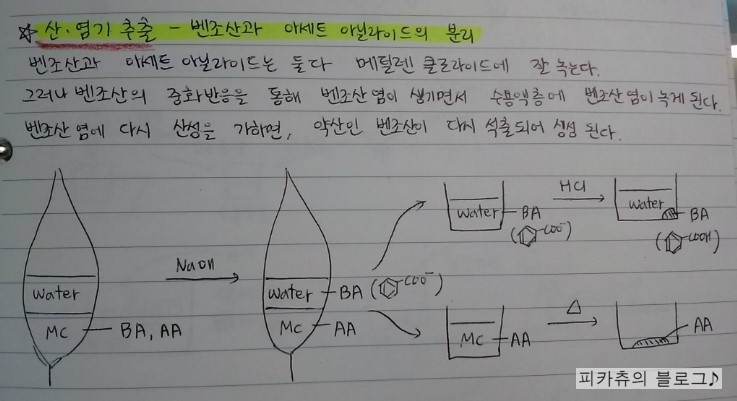 ☆ 산·염기 추출 - 벤조산과 아세트 아닐라이드의 분리
벤조산과 아세트 아닐라이드는 둘다 메틸렌 클로라이드에 잘 녹는다.
그러나 벤조산의 중화반응을 통해 벤조산 염이 생기면서 수용액층에 벤조산 염이 녹게 된다.
벤조산 염에 다시 산성을 가하면, 약산인 벤조산이 다시 석출되어 생성 된다.
water
MC
BA, AA
NaOH
water
BA ( COO⁻)
MC
AA
water
BA
( COO⁻)
HCl
water
BA
( COOH)
MC
AA
△
AA
피카츄의 블로그♪